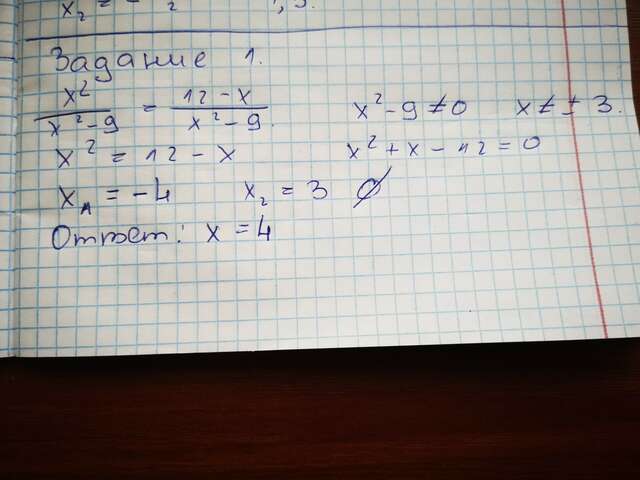 Задание 1.
x²/x²-9 = 12-x/x²-9. x²-9≠0 x≠±3.
x² = 12-x x²+x-12=0
x₁ = -4 x₂ = 3 ∅
Ответ: x=4